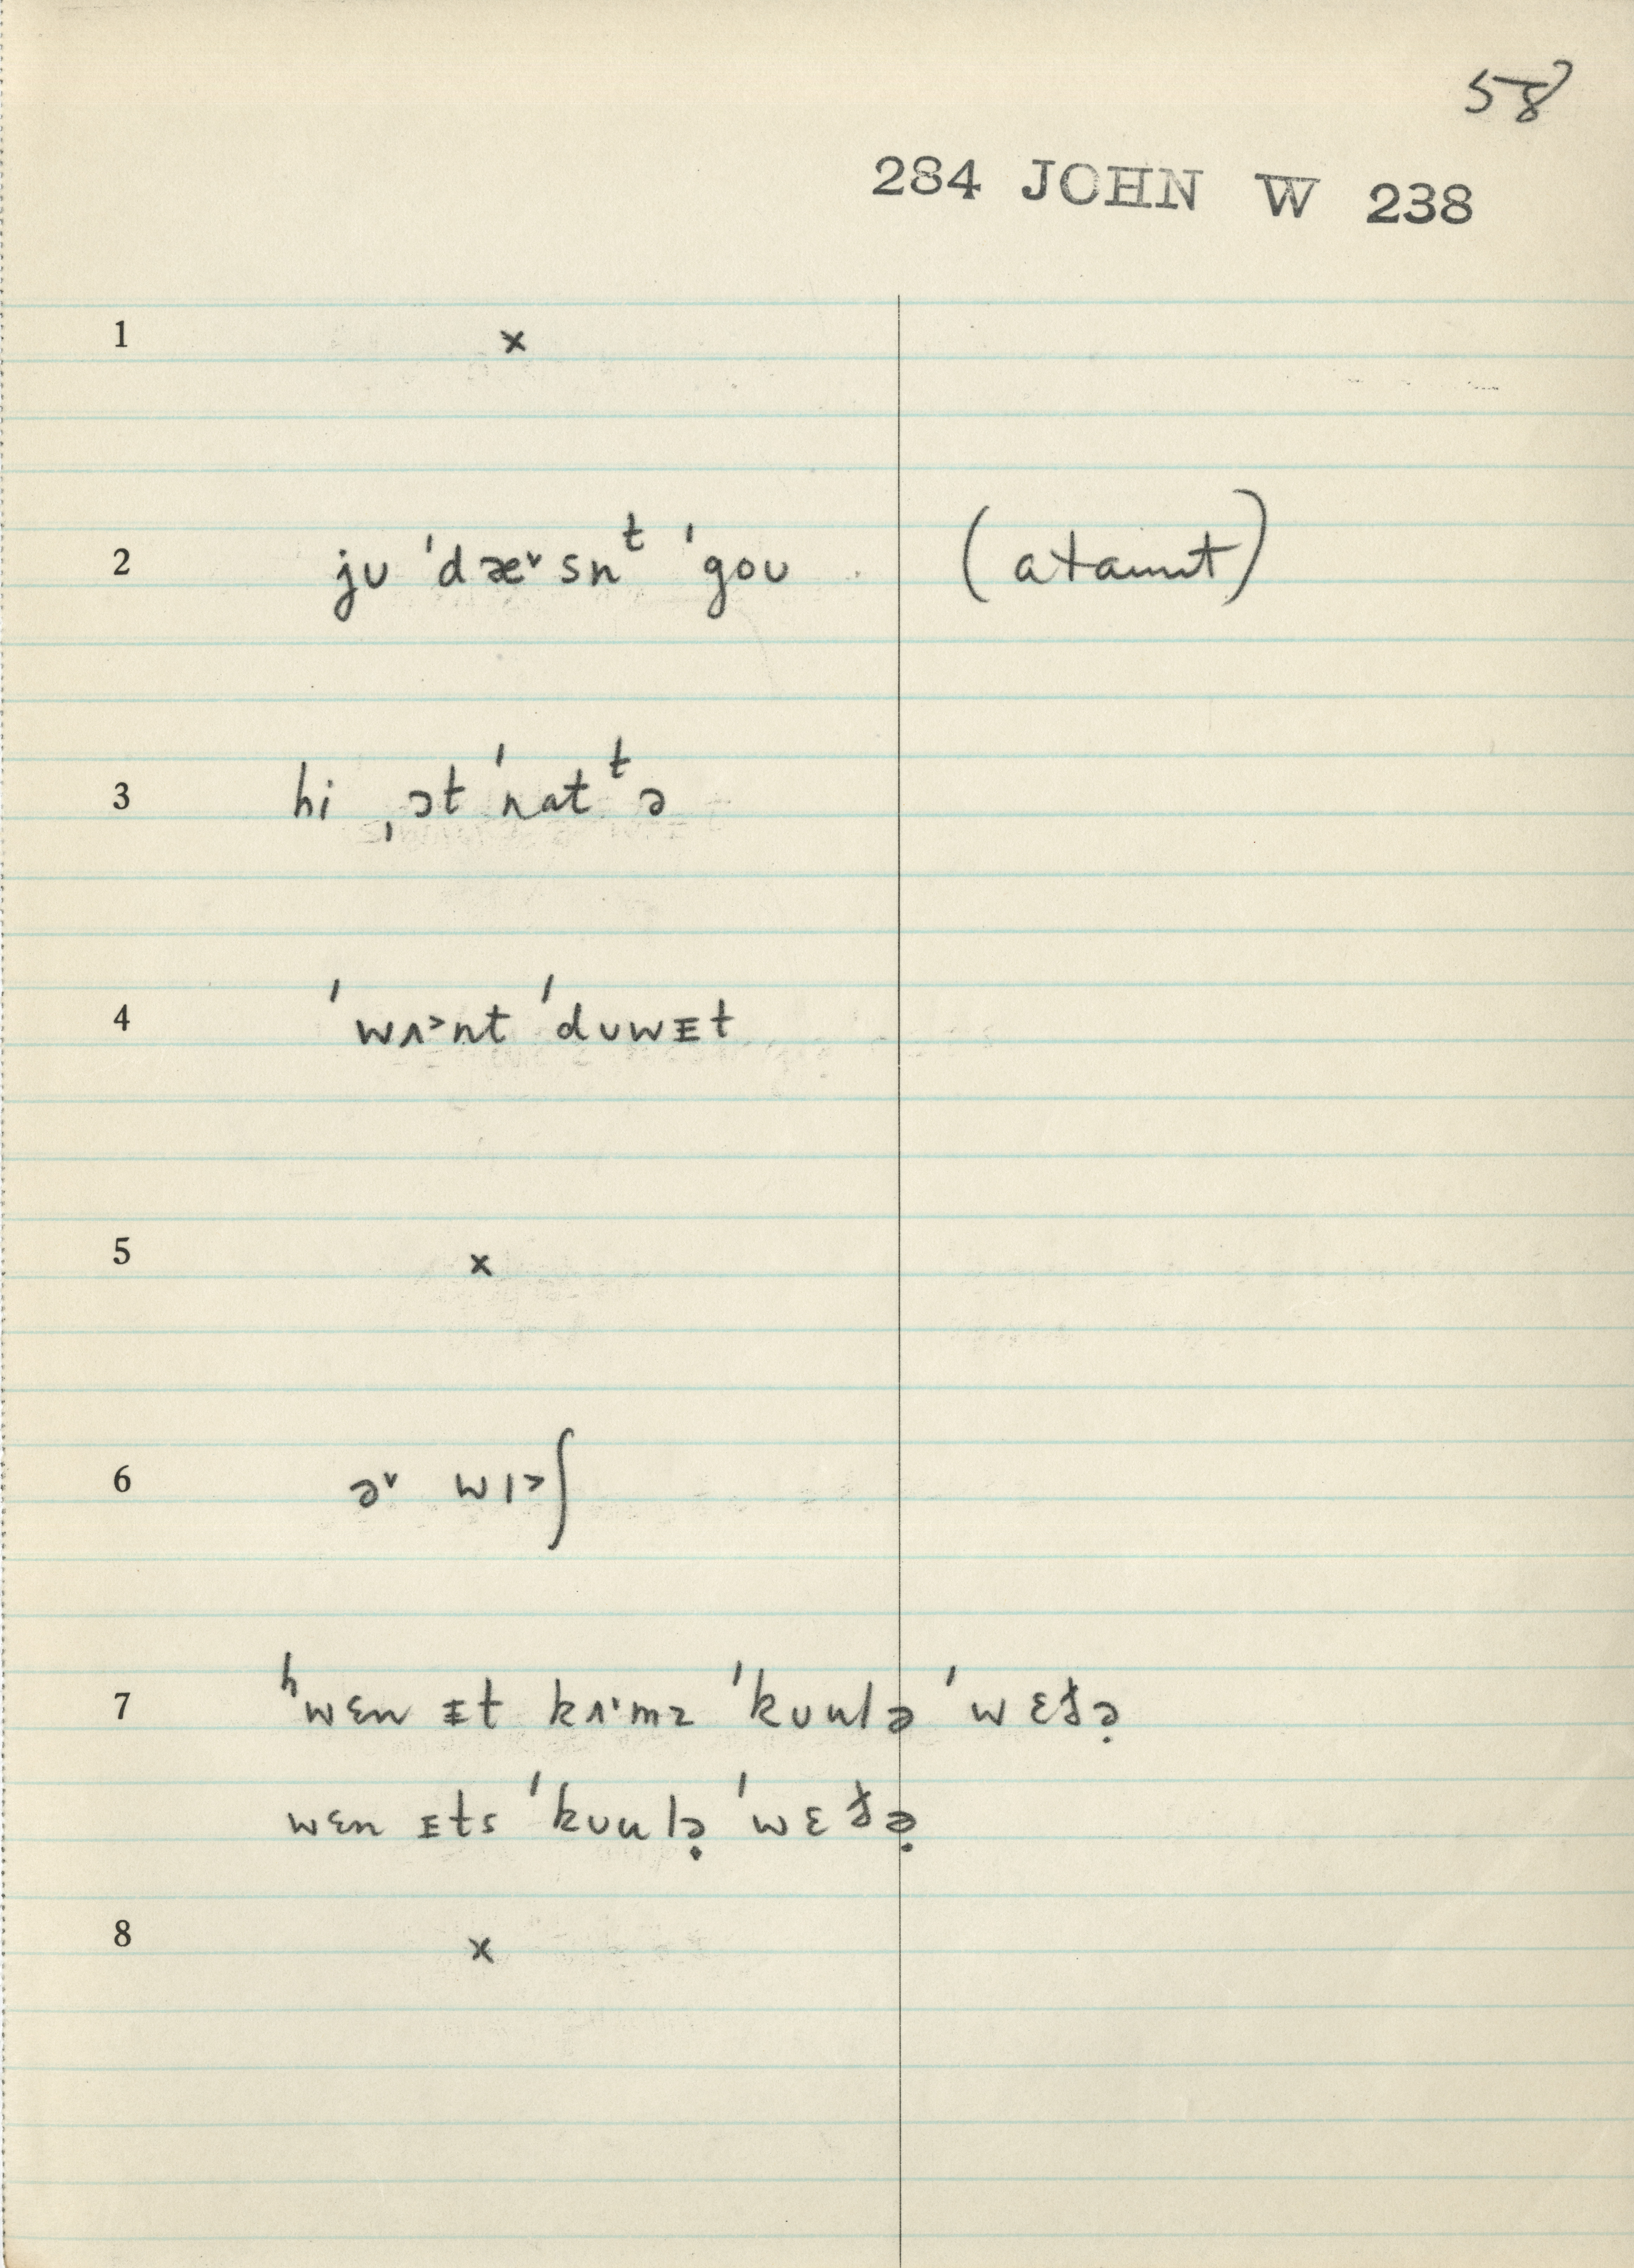 58
284 JOHN W 238
1 ×
2 jʊ ˈdæ˅snᵗ ˈgoʊ
3 hi ˌɔt ˈnatᵗə
4 ˈwʌ˃nt ˈdʊwᵻt
5 ×
6 ə˅ wɪ˃ʃ
7 ʰwɛn ᵻt kʌ˔mz ˈkʊulə ˈwɛðə̣
wɛn ɪts ˈkʊulə̣ ˈwɛðə̣
8 ×